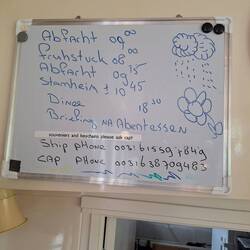 Abfacht 09⁰⁰
fruhstuck 08⁰⁰
Abfacht 09³⁵
Stamheim ± 10 45
Diner 18³⁰
Briefing NA Abentessen
souvenirs and keychains please ask capt
Ship phone
CAP PHONE 0031638709483